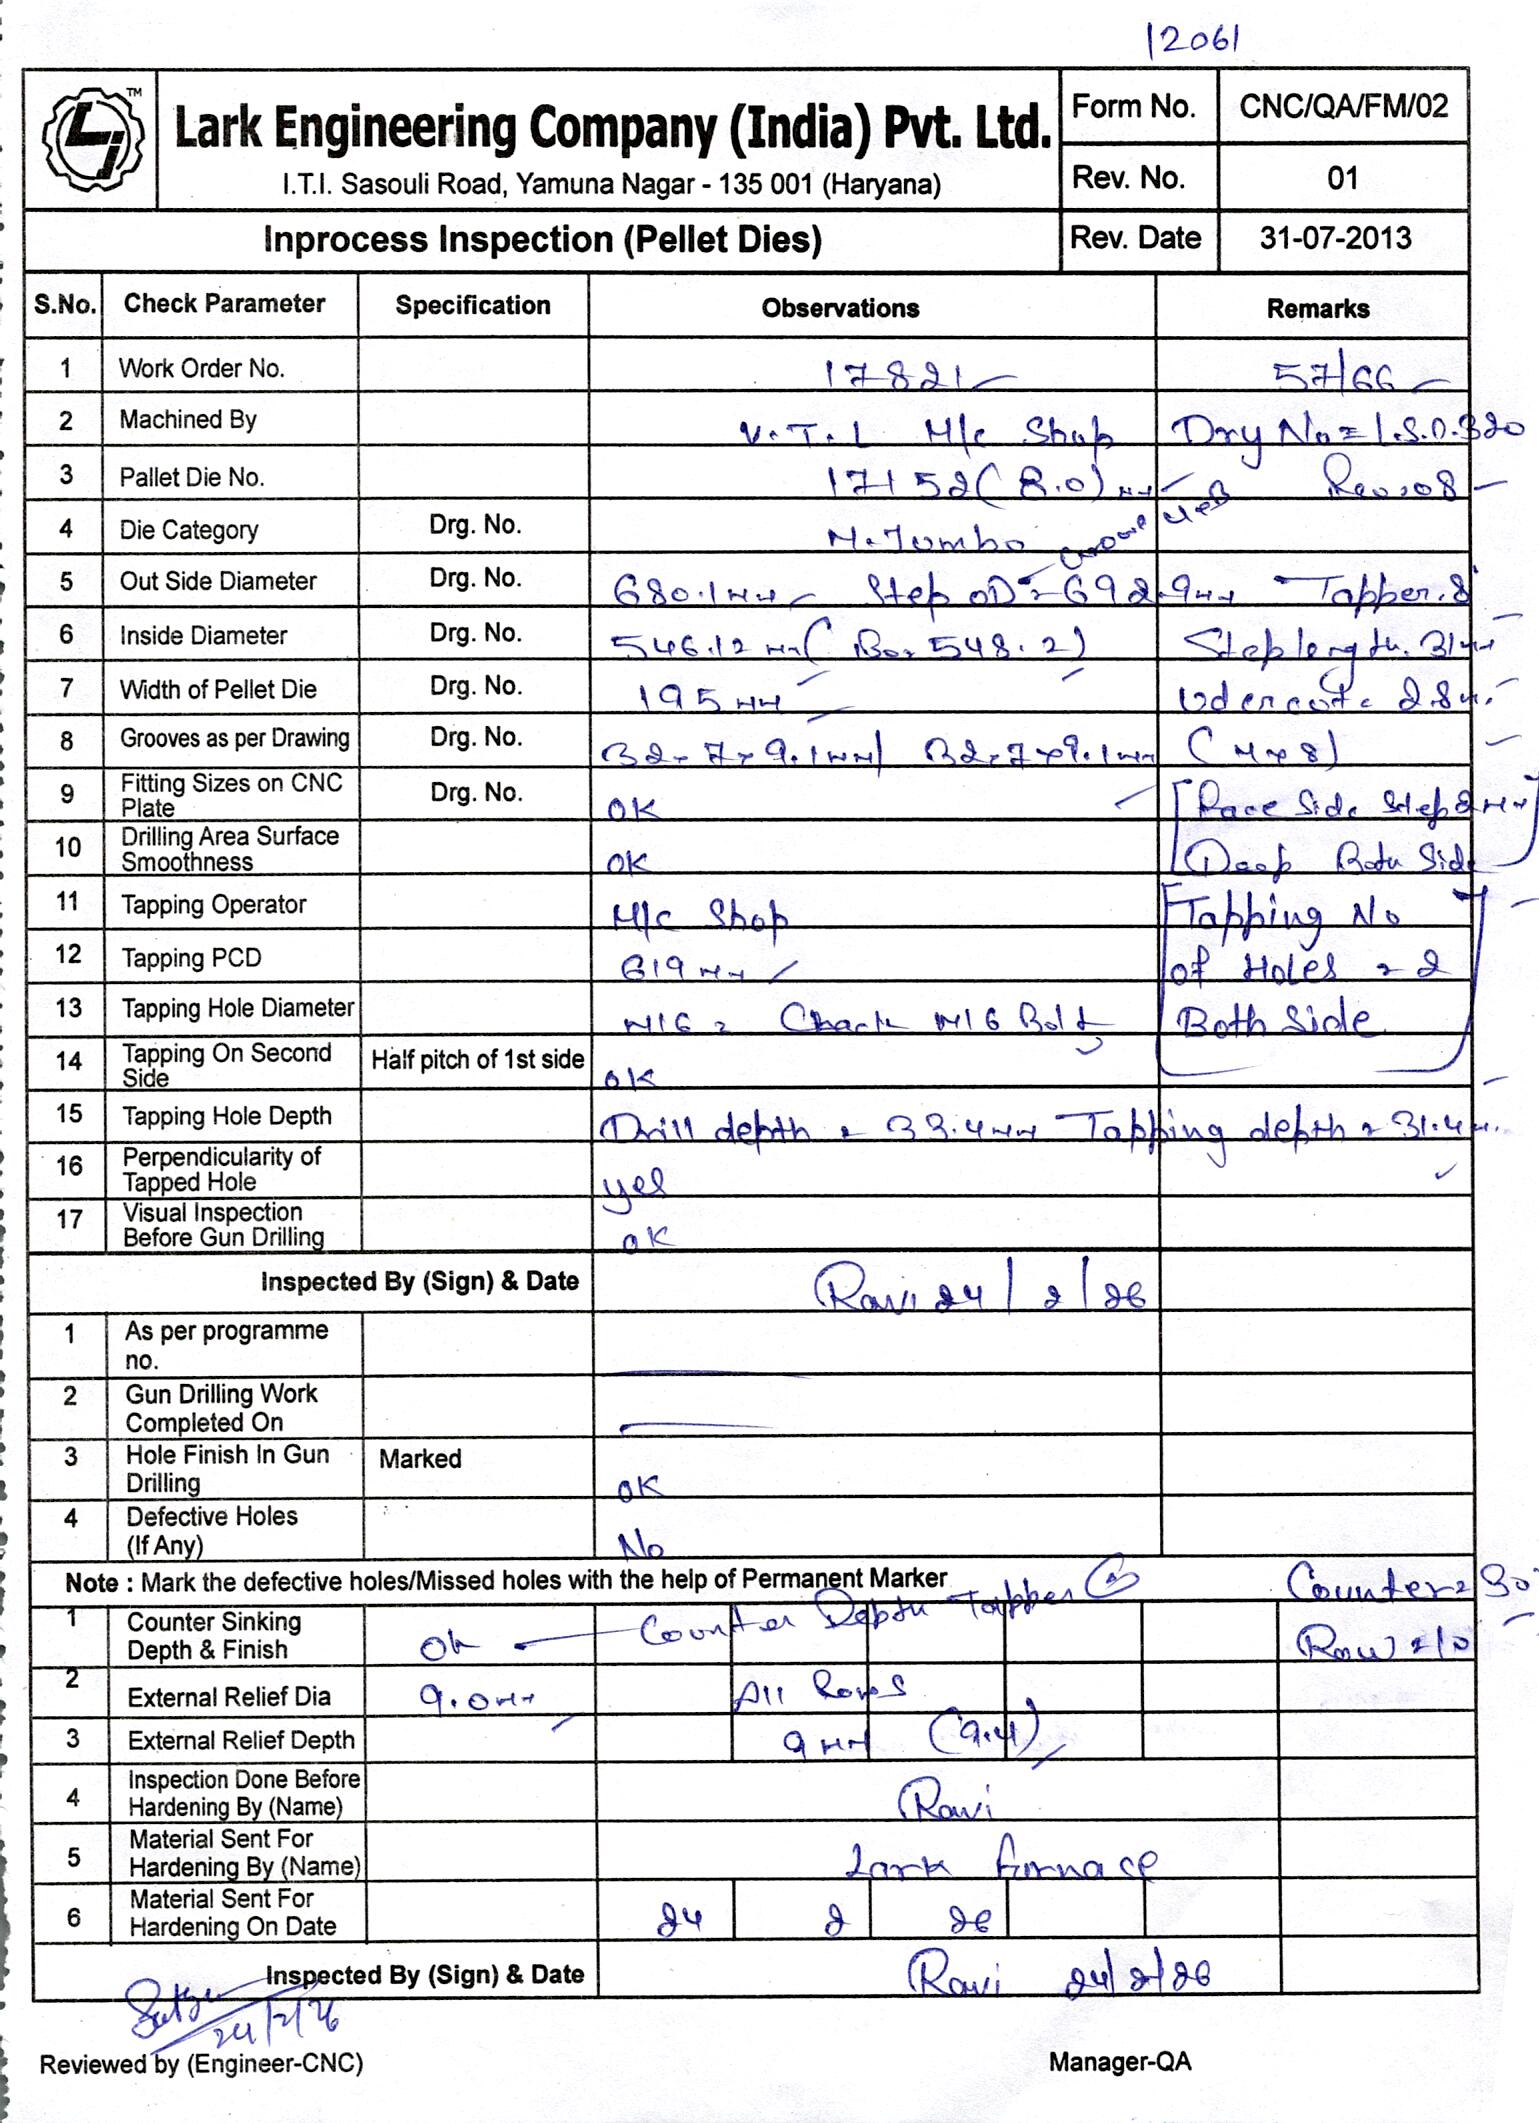 12061
TM
Lark Engineering Company (India) Pvt. Ltd.
I.T.I. Sasouli Road, Yamuna Nagar - 135 001 (Haryana)
Form No. CNC/QA/FM/02
Rev. No. 01
Inprocess Inspection (Pellet Dies) Rev. Date 31-07-2013
S.No. Check Parameter Specification Observations Remarks
1 Work Order No. 17821 57/66
2 Machined By V.T.L M/c Shop Dry No = L.S.D.320
3 Pallet Die No. 17152 (8.0) mm Rev:08
4 Die Category Drg. No. M.Jumbo Groove
5 Out Side Diameter Drg. No. 680.1mm Step OD = 692.9mm Tapper.8°
6 Inside Diameter Drg. No. 546.12 mm (Bo. 548.2) Step length. 31mm
7 Width of Pellet Die Drg. No. 195 mm Udercut = 2.8m.
8 Grooves as per Drawing Drg. No. B2-7x9.1mm/ B2-7x9.1mm (4x8)
9 Fitting Sizes on CNC Plate Drg. No. OK [Race Side Step 2mm
10 Drilling Area Surface Smoothness OK Deep Both Side]
11 Tapping Operator M/c Shop [Tapping No
12 Tapping PCD 619 mm of Holes = 2
13 Tapping Hole Diameter M16 = Chack M16 Bolt Both Side]
14 Tapping On Second Side Half pitch of 1st side OK
15 Tapping Hole Depth Drill depth = 33.4mm Tapping depth = 31.4m.
16 Perpendicularity of Tapped Hole yes
17 Visual Inspection Before Gun Drilling OK
Inspected By (Sign) & Date Ravi 24/2/26
1 As per programme no.
2 Gun Drilling Work Completed On
3 Hole Finish In Gun Drilling Marked OK
4 Defective Holes (If Any) No
Note : Mark the defective holes/Missed holes with the help of Permanent Marker Counter = 30°
1 Counter Sinking Depth & Finish Ok Counter Depth Tapper Row = 10
2 External Relief Dia 9.0mm All Rows
3 External Relief Depth 9 mm (9.4)
4 Inspection Done Before Hardening By (Name) Ravi
5 Material Sent For Hardening By (Name) Lark furnace
6 Material Sent For Hardening On Date 24 2 26
Inspected By (Sign) & Date Ravi 24/2/26
24/2/26
Reviewed by (Engineer-CNC) Manager-QA